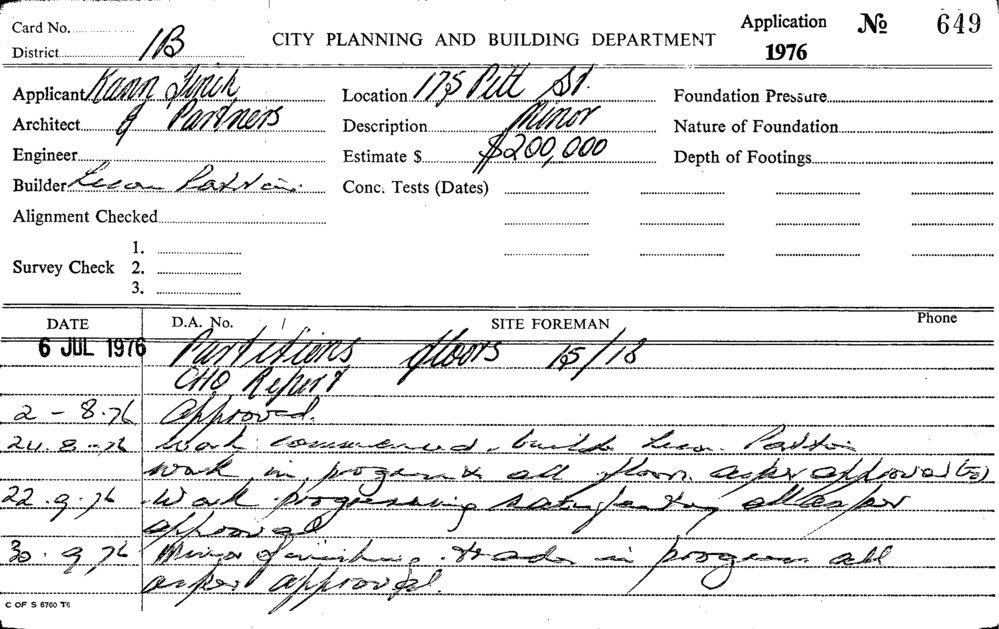 Card No.
District 1B
CITY PLANNING AND BUILDING DEPARTMENT
Application No 649
1976
Applicant Kann Finch
Architect & Partners
Engineer
Builder
Alignment Checked
Survey Check 1.
2.
3.
Location 175 Pitt St.
Description Minor
Estimate $ $200,000
Conc. Tests (Dates)
Foundation Pressure
Nature of Foundation
Depth of Footings
DATE D.A. No. SITE FOREMAN Phone
6 JUL 1976 Partitions floors 15/18
CHO Report
2-8.76 Approved.
24.8-76 Work commenced. builder
work in progress all floors as per approval
22.9.76 Work progressing satisfactory all as per
approval
30.9.76 Minor finishing trades in progress all
as per approval.
C OF S 6760 T6